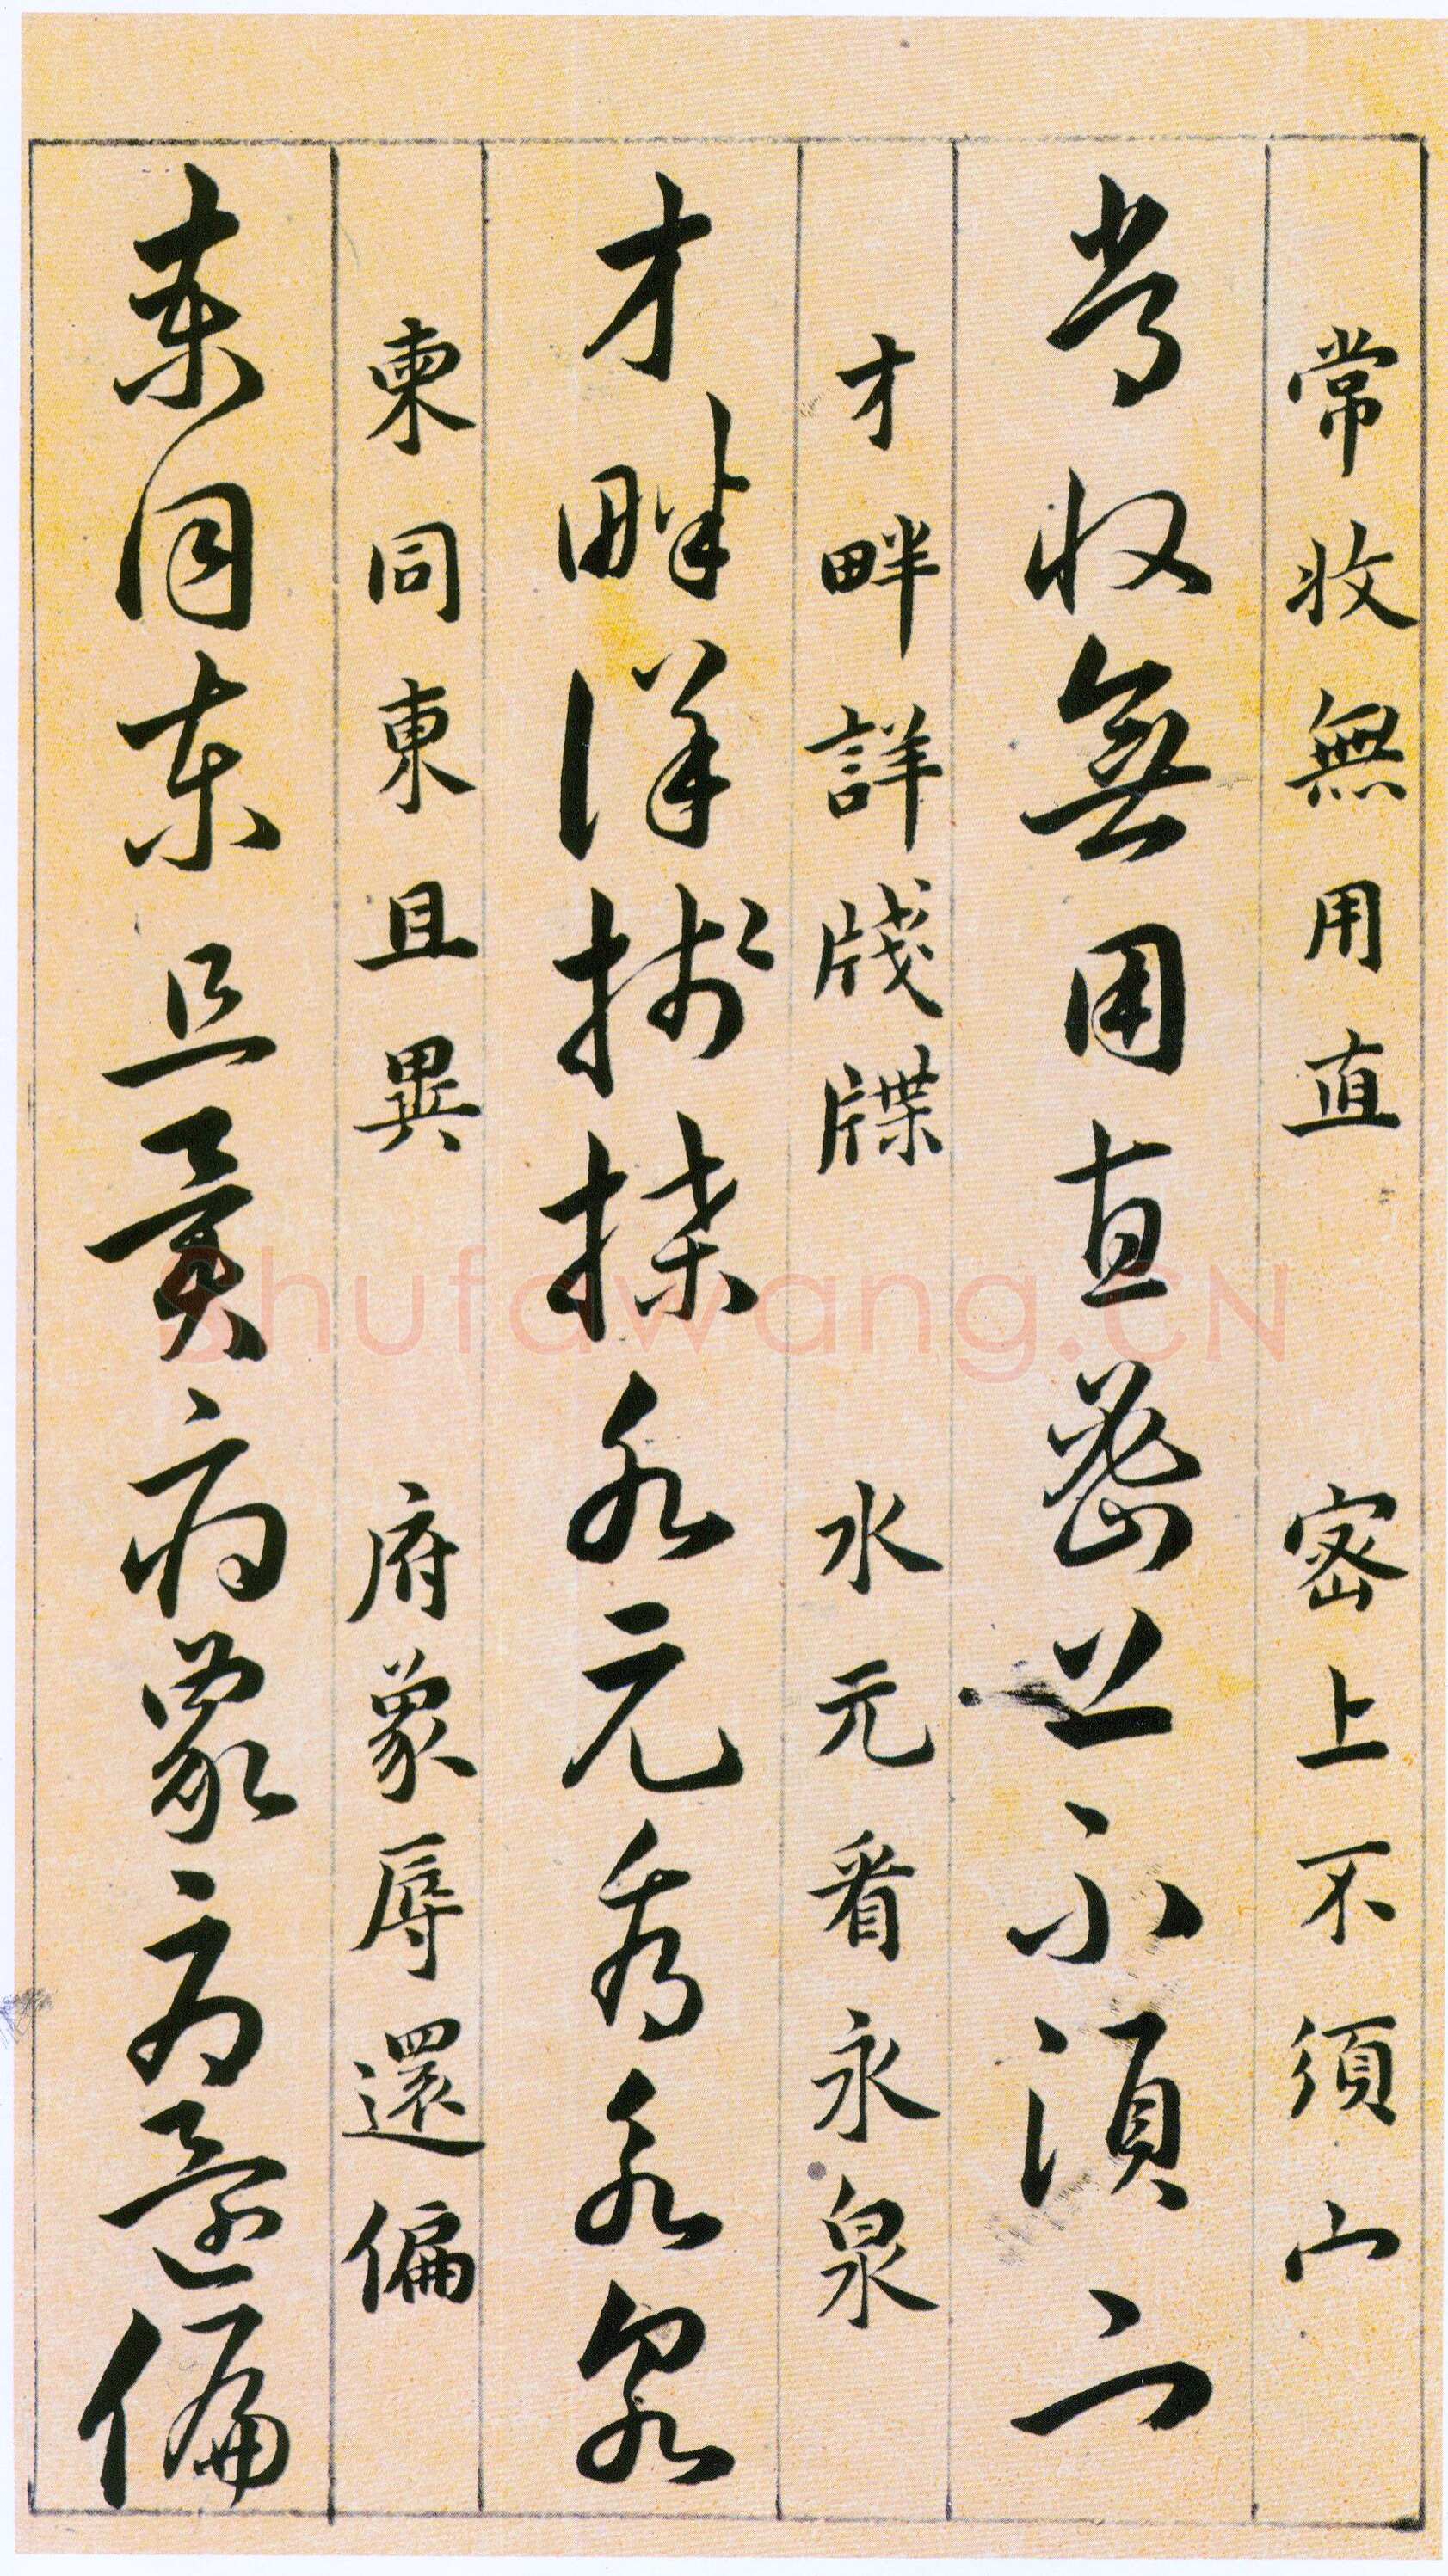 常收無用直 密上不須宀
常收無用直密上不須宀
才畔詳牋牒 水元看永泉
才畔詳牋牒水元看永泉
柬同東且異 府象辱還偏
柬同東且異府象辱還偏
shufawang.CN